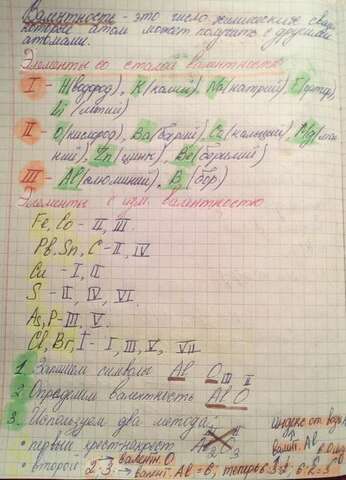 Валентность - это число химических связей
которые атом может получить с другими
атомами.
Элементы со сталой валентностью
I - H(водород), K(калий), Na(натрий) F(фтор),
Li (литий)
II - O(кислород), Ba(барий) Ca(кальций) Mg(маг
ний), Zn(цинк), Be(берилий)
III - Al(алюминий), B (бор)
Элементы с изм. валентностью
Fe, Co - II, III.
Pb, Sn, C - II, IV
Cu - I, II
S - II, IV, VI.
As, P - III, V.
Cl, Br, I - I, III, V, VII.
1. Запишем символы Al O
2. Определим валнтность Al O III II
3. Используем два метода:
• первый крест-накрест Al2O3
• второй: 2·3
валент. O
валент. Al = 6, теперь 6:3=2 6:2=3
индекс от
валент. Al